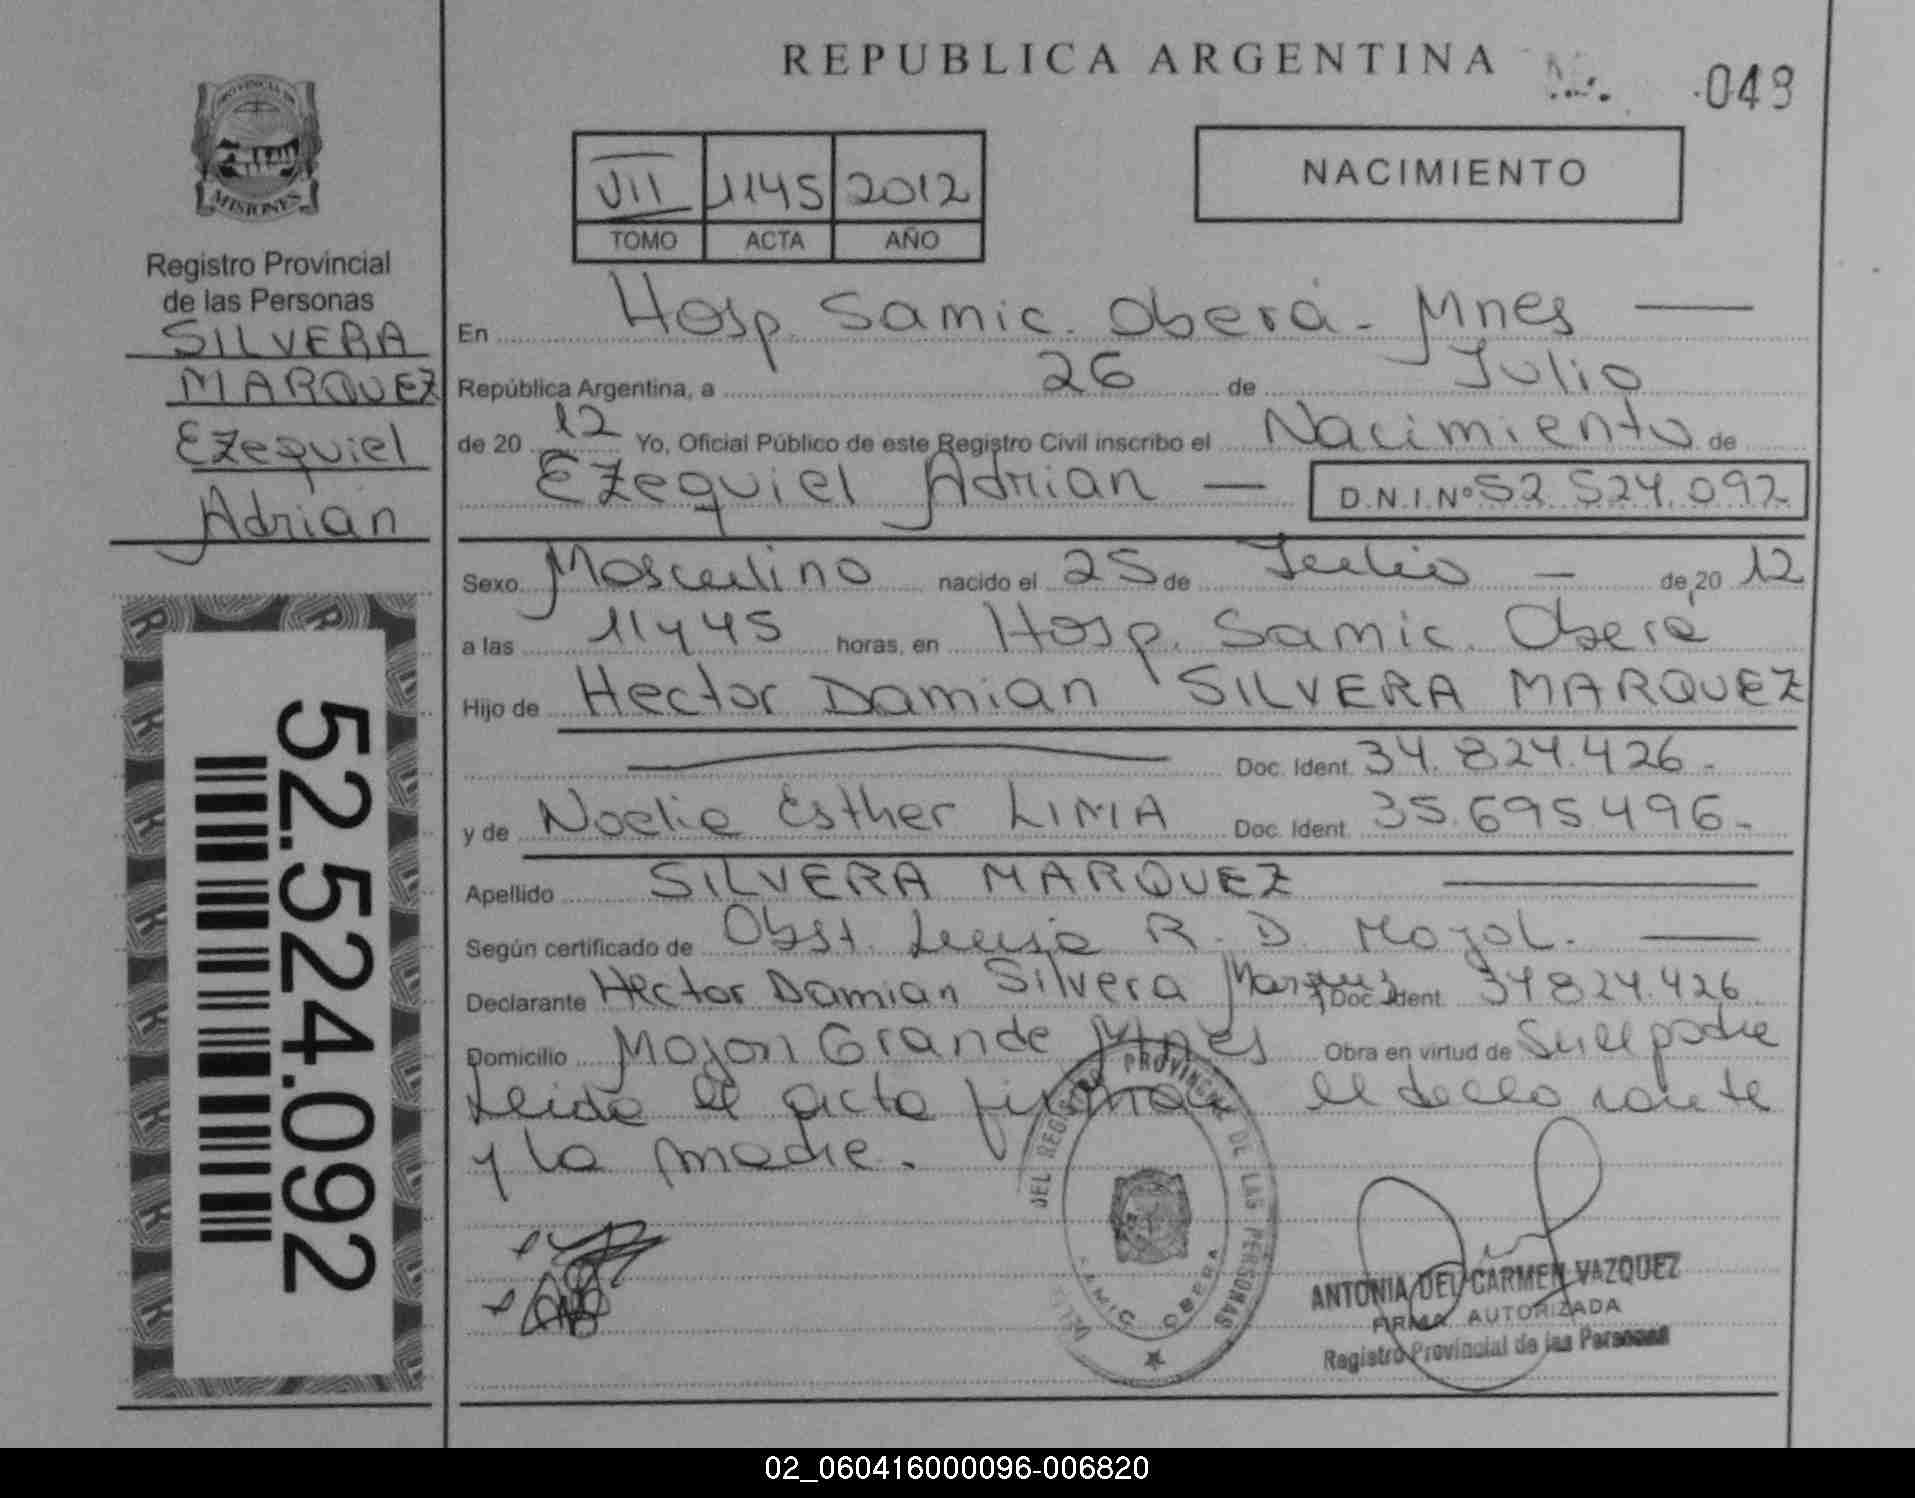 REPUBLICA ARGENTINA
049
PROVINCIA DE
MISIONES
Registro Provincial
de las Personas
SILVERA
MARQUEZ
Ezequiel
Adrian
52.524.092
VII 1145 2012
TOMO ACTA AÑO
NACIMIENTO
En Hosp. Samic. Oberá - Mnes
República Argentina, a 26 de Julio
de 20 12 Yo, Oficial Público de este Registro Civil inscribo el Nacimiento de
Ezequiel Adrian — D.N.I.Nº 52.524.092
Sexo Masculino nacido el 25 de Julio — de 20 12
a las 11 y 45 horas, en Hosp. Samic. Oberá
Hijo de Hector Damian SILVERA MARQUEZ
Doc. Ident. 34.824.426.-
y de Noelia Esther LIMA Doc. Ident. 35.695.496.-
Apellido SILVERA MARQUEZ
Según certificado de Obst. Luisa R. D. Mogol.
Declarante Hector Damian Silvera Marquez Doc. Ident. 34824.426
Domicilio Mojon Grande Mnes Obra en virtud de Ser el padre
Leida el acta firman el declarante
y la madre.
DEL REGISTRO PROVINCIAL DE LAS PERSONAS
SAMIC OBERA
ANTONIA DEL CARMEN VAZQUEZ
FIRMA AUTORIZADA
Registro Provincial de las Personas
02_060416000096-006820